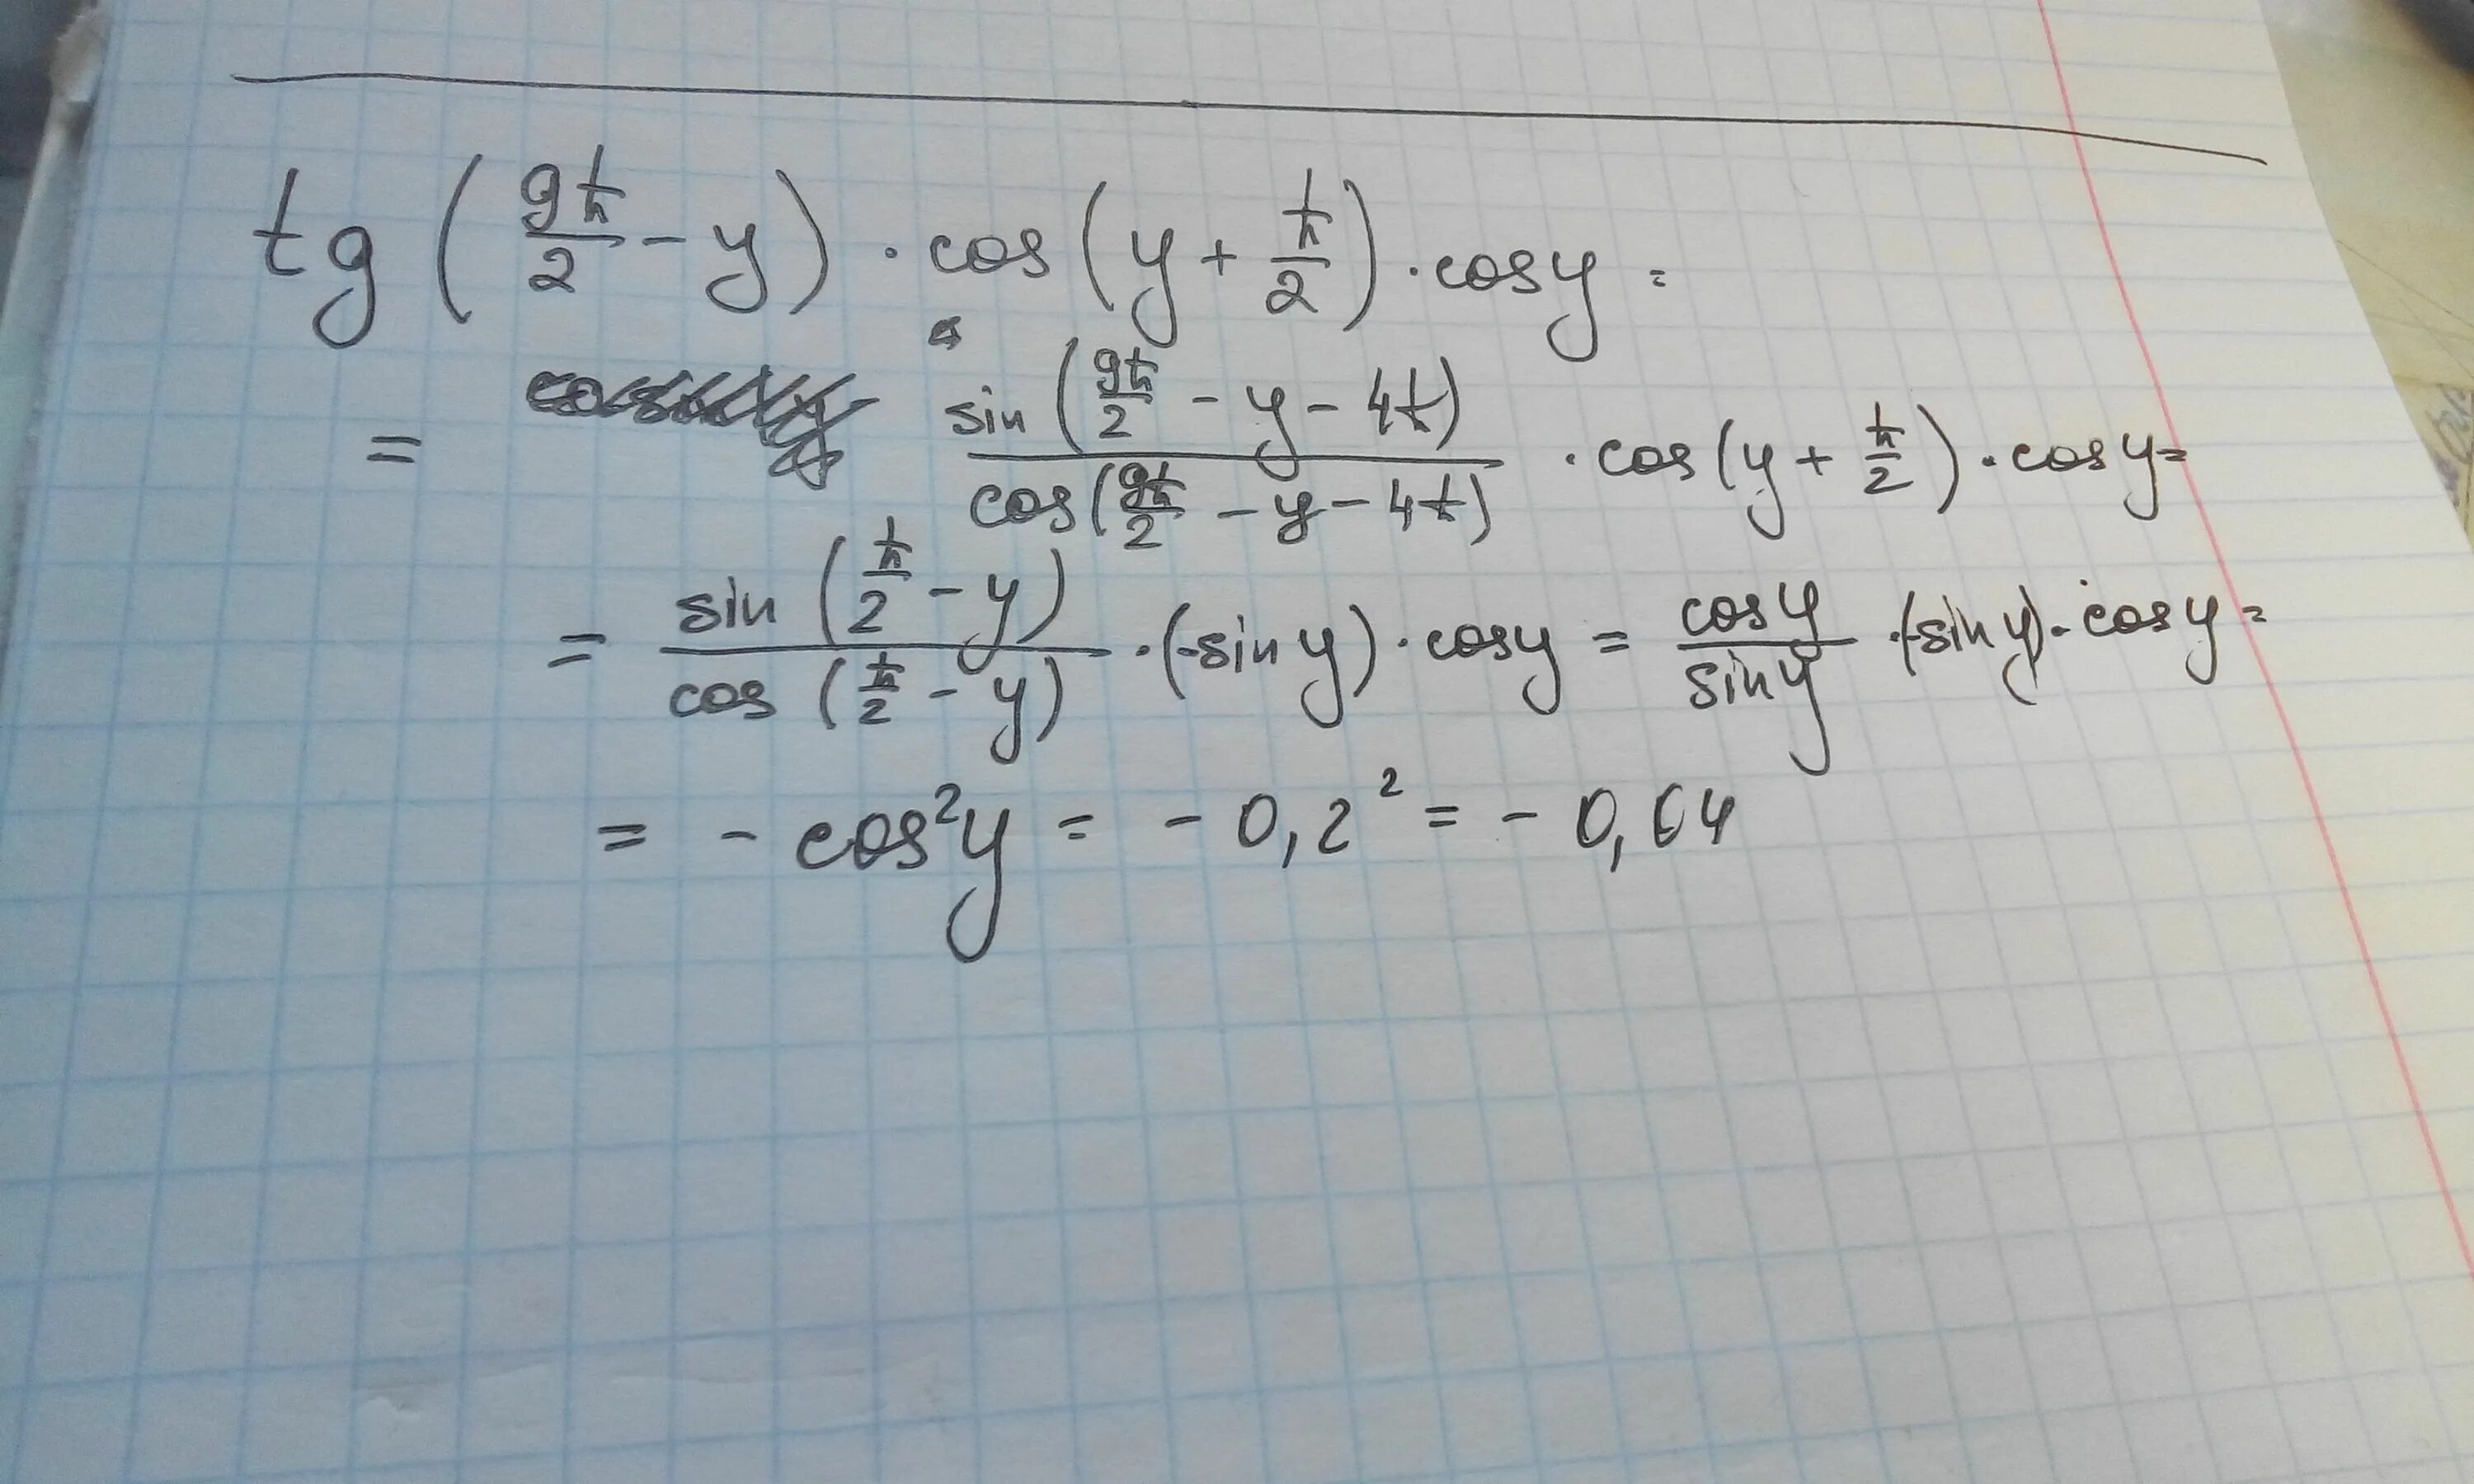 tg (9π/2 - y) · cos (y + π/2) · cos y =
= sin (9π/2 - y - 4π) / cos (9π/2 - y - 4π) · cos (y + π/2) · cos y =
= sin (π/2 - y) / cos (π/2 - y) · (-sin y) · cos y = cos y / sin y · (-sin y) · cos y =
= - cos² y = - 0,2² = - 0,04